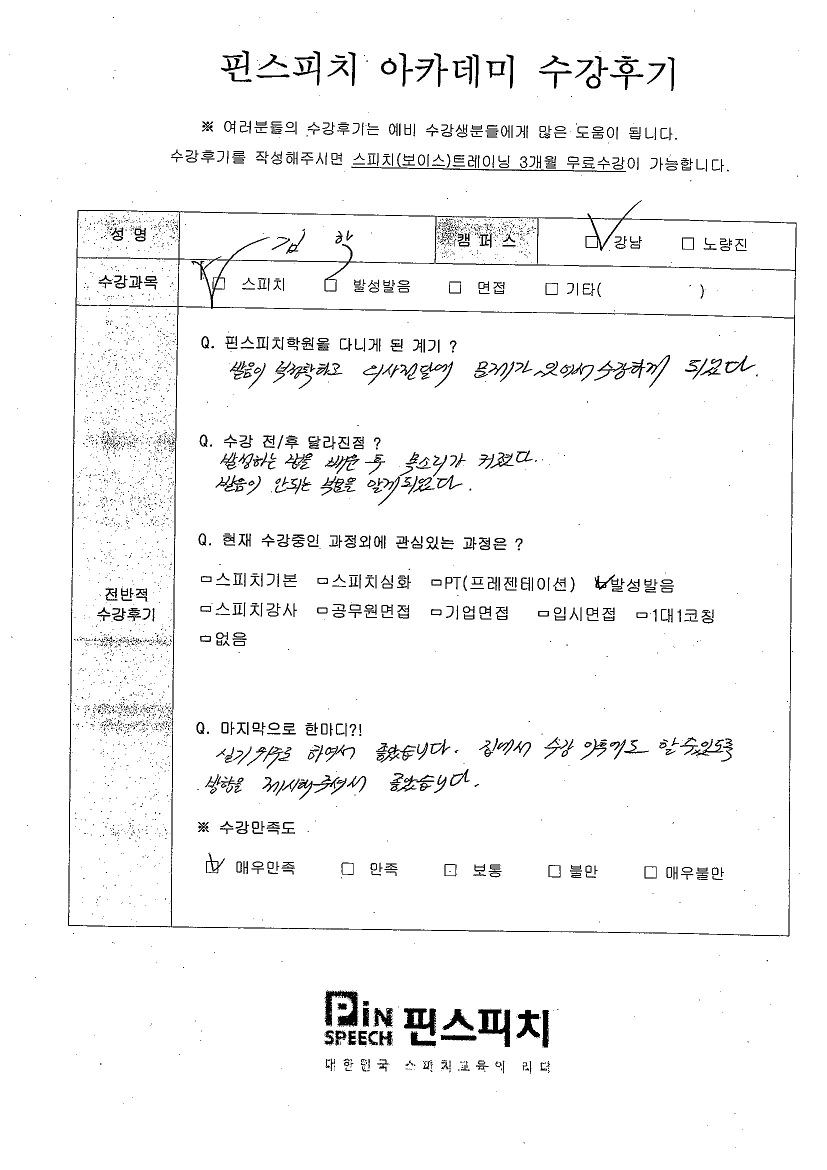 핀스피치 아카데미 수강후기
※ 여러분들의 수강후기는 예비 수강생분들에게 많은 도움이 됩니다.
수강후기를 작성해주시면 스피치(보이스)트레이닝 3개월 무료수강이 가능합니다.
성 명 김 한 캠 퍼 스 □ 강남 □ 노량진
수강과목 □ 스피치 □ 발성발음 □ 면접 □ 기타( )
Q. 핀스피치학원을 다니게 된 계기 ?
발음이 부정확하고 의사전달에 문제가 있어서 수강하게 되었다.
Q. 수강 전/후 달라진점 ?
발성하는 법을 배운 후 목소리가 커졌다.
발음이 안되는 부분을 알게되었다.
Q. 현재 수강중인 과정외에 관심있는 과정은 ?
□스피치기본 □스피치심화 □PT(프레젠테이션) □발성발음
전반적
수강후기
□스피치강사 □공무원면접 □기업면접 □입시면접 □1대1코칭
□없음
Q. 마지막으로 한마디?!
실기위주로 하여서 좋았습니다. 집에서 수강 이후에도 할수있도록
방향을 제시해주셔서 좋았습니다.
※ 수강만족도
□ 매우만족 □ 만족 □ 보통 □ 불만 □ 매우불만
PiN
SPEECH 핀스피치
대한민국 스피치교육의 리더